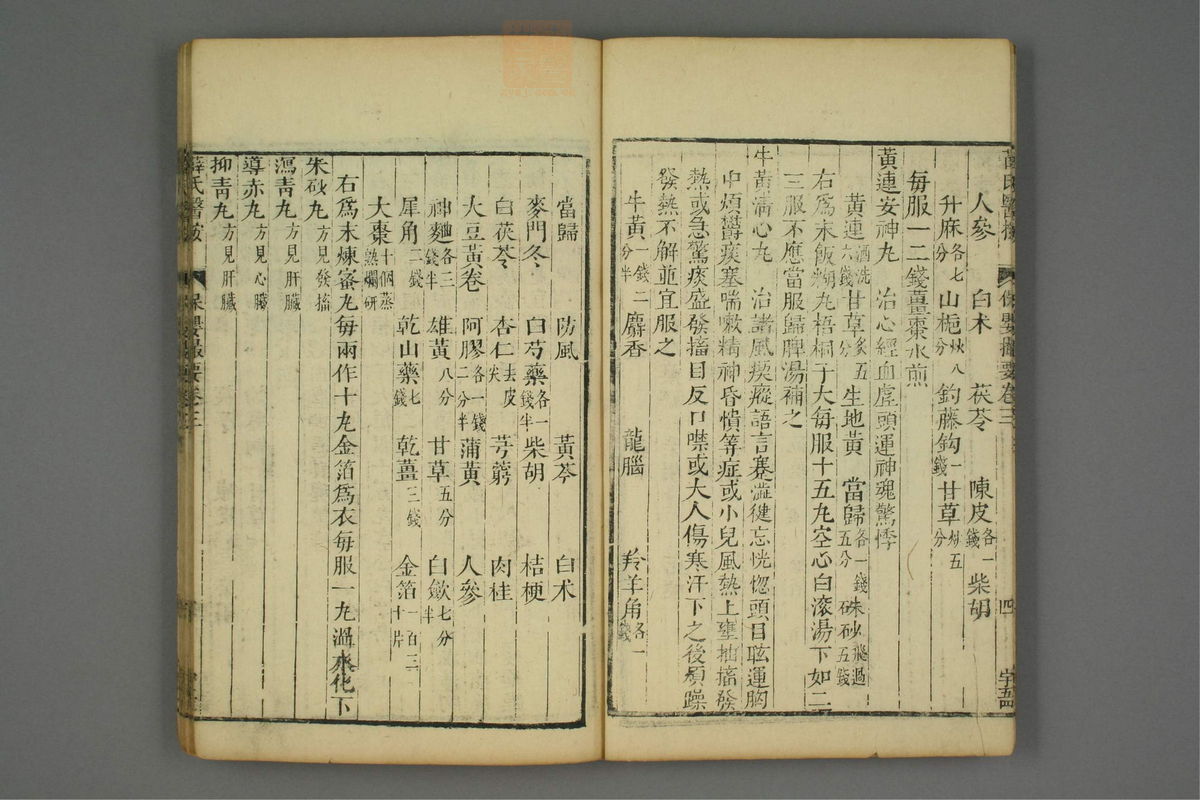 人參　白术　茯苓　陳皮各一錢　柴胡
升麻各七分　山梔炒八分　釣藤鈎一錢　甘草炒五分
每服一二錢薑棗水煎
黃連安神丸　治心經血虛頭運神魂驚悸
黃連酒洗六錢　甘草炙五分　生地黃　當歸各一錢五分　朱砂飛過五錢
右爲末飯糊丸梧桐子大每服十五丸空心白滾湯下如二
三服不應當服歸脾湯補之
牛黃淸心丸　治諸風瘈瘲語言蹇澁健忘恍惚頭目眩運胸
中煩鬱痰塞喘嗽精神昏憒等症或小兒風熱上壅抽搐發
熱或急驚痰盛發搐目反口噤或大人傷寒汗下之後煩躁
發熱不解並宜服之
牛黃一錢二分半　麝香　龍腦　羚羊角各一錢
四
薛氏醫按　保嬰撮要卷三
當歸　防風　黃芩　白术
麥門冬　白芍藥各一錢半　柴胡　桔梗
白茯苓　杏仁去皮尖　芎藭　肉桂
大豆黃卷　阿膠各一錢二分半　蒲黃　人參
神麯各三錢半　雄黃八分　甘草五分　白歛七分半
犀角二錢　乾山藥七錢　乾薑三錢　金箔一百二十片
大棗十個蒸熟爛研
右爲末煉蜜丸每兩作十丸金箔爲衣每服一丸溫水化下
朱砂丸方見發搐
瀉靑丸方見肝臟
導赤丸方見心臟
抑靑丸方見肝臟
薛氏醫按　保嬰撮要卷三